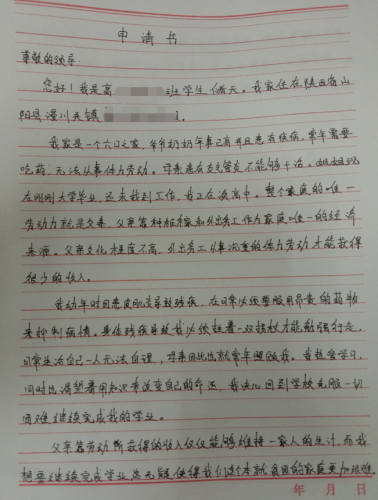 申请书
尊敬的领导:
您好!我是高 班学生,倩天。我家住在陕西省山
阳县漫川关镇
我家是一个六口之家,爷爷奶奶年事已高并且患有疾病,常年需要
吃药,无法从事体力劳动。母亲患有支气管炎不能够干活。姐姐现
在刚刚大学毕业,还未找到工作,我正在读高中。整个家庭的唯一
劳动力就是父亲,父亲靠种庄稼和外出务工作为家庭唯一的经济
来源。父亲文化程度不高,外出务工从事沉重的体力劳动才能获得
很少的收入。
我幼年时因患皮肌炎导致残疾,在日常必须要服用昂贵的药物
来抑制病情。身体残疾导致我必须拄着一双拐杖才能勉强行走,
日常生活自己一人无法自理,母亲因此也就常年照顾我。我热爱学习,
同时也渴望着用知识来改变自己的命运,我决心回到学校克服一切
困难继续完成我的学业。
父亲靠劳动所获得的收入仅仅能够维持一家人的生计,而我
想要继续完成学业这无疑使得我们这个本就贫困的家庭更加艰难
年 月 日